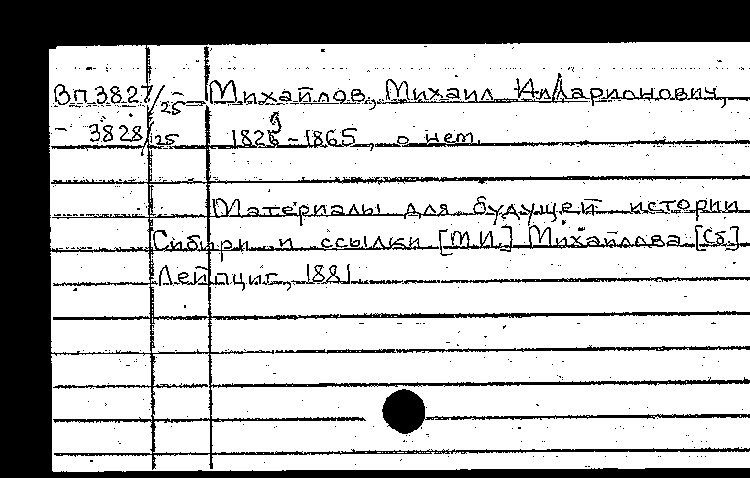 Вп 3827/25 Михайлов, Михаил Илларионович,
- 3828/25 1829-1865, о нем.
Материалы для будущей истории
Сибири и ссылки [М.И.] Михайлова [Сб.]
Лейпциг, 1881.